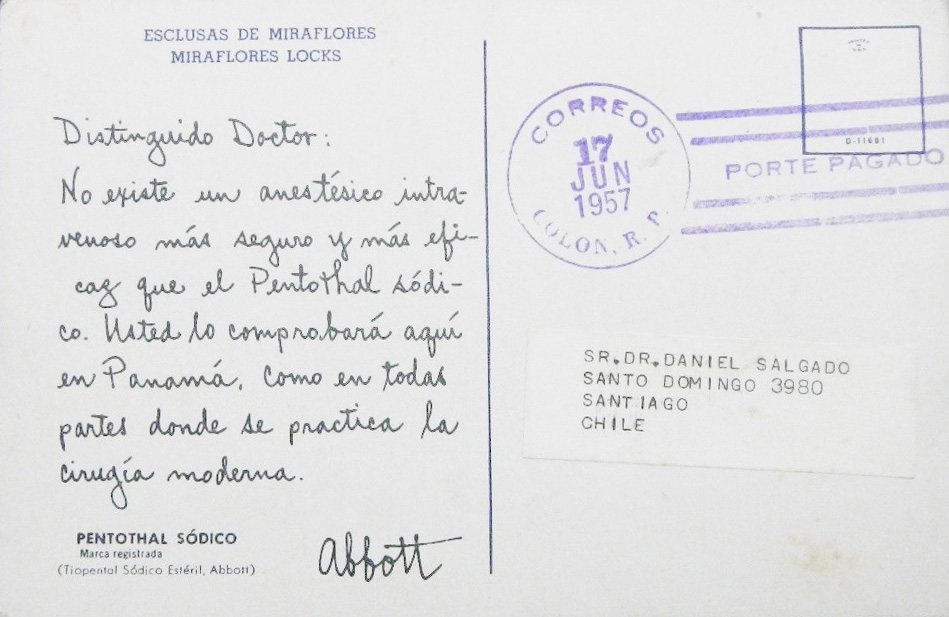 ESCLUSAS DE MIRAFLORES
MIRAFLORES LOCKS
Distinguido Doctor:
No existe un anestésico intra-
venoso más seguro y más efi-
caz que el Pentothal sódi-
co. Usted lo comprobará aquí
en Panamá, como en todas
partes donde se practica la
cirugía moderna.
PENTOTHAL SÓDICO
Marca registrada
(Tiopental Sódico Estéril, Abbott)
Abbott
CORREOS
17
JUN
1957
COLON, R. P.
PORTE PAGADO
D-11601
SR.DR.DANIEL SALGADO
SANTO DOMINGO 3980
SANTIAGO
CHILE